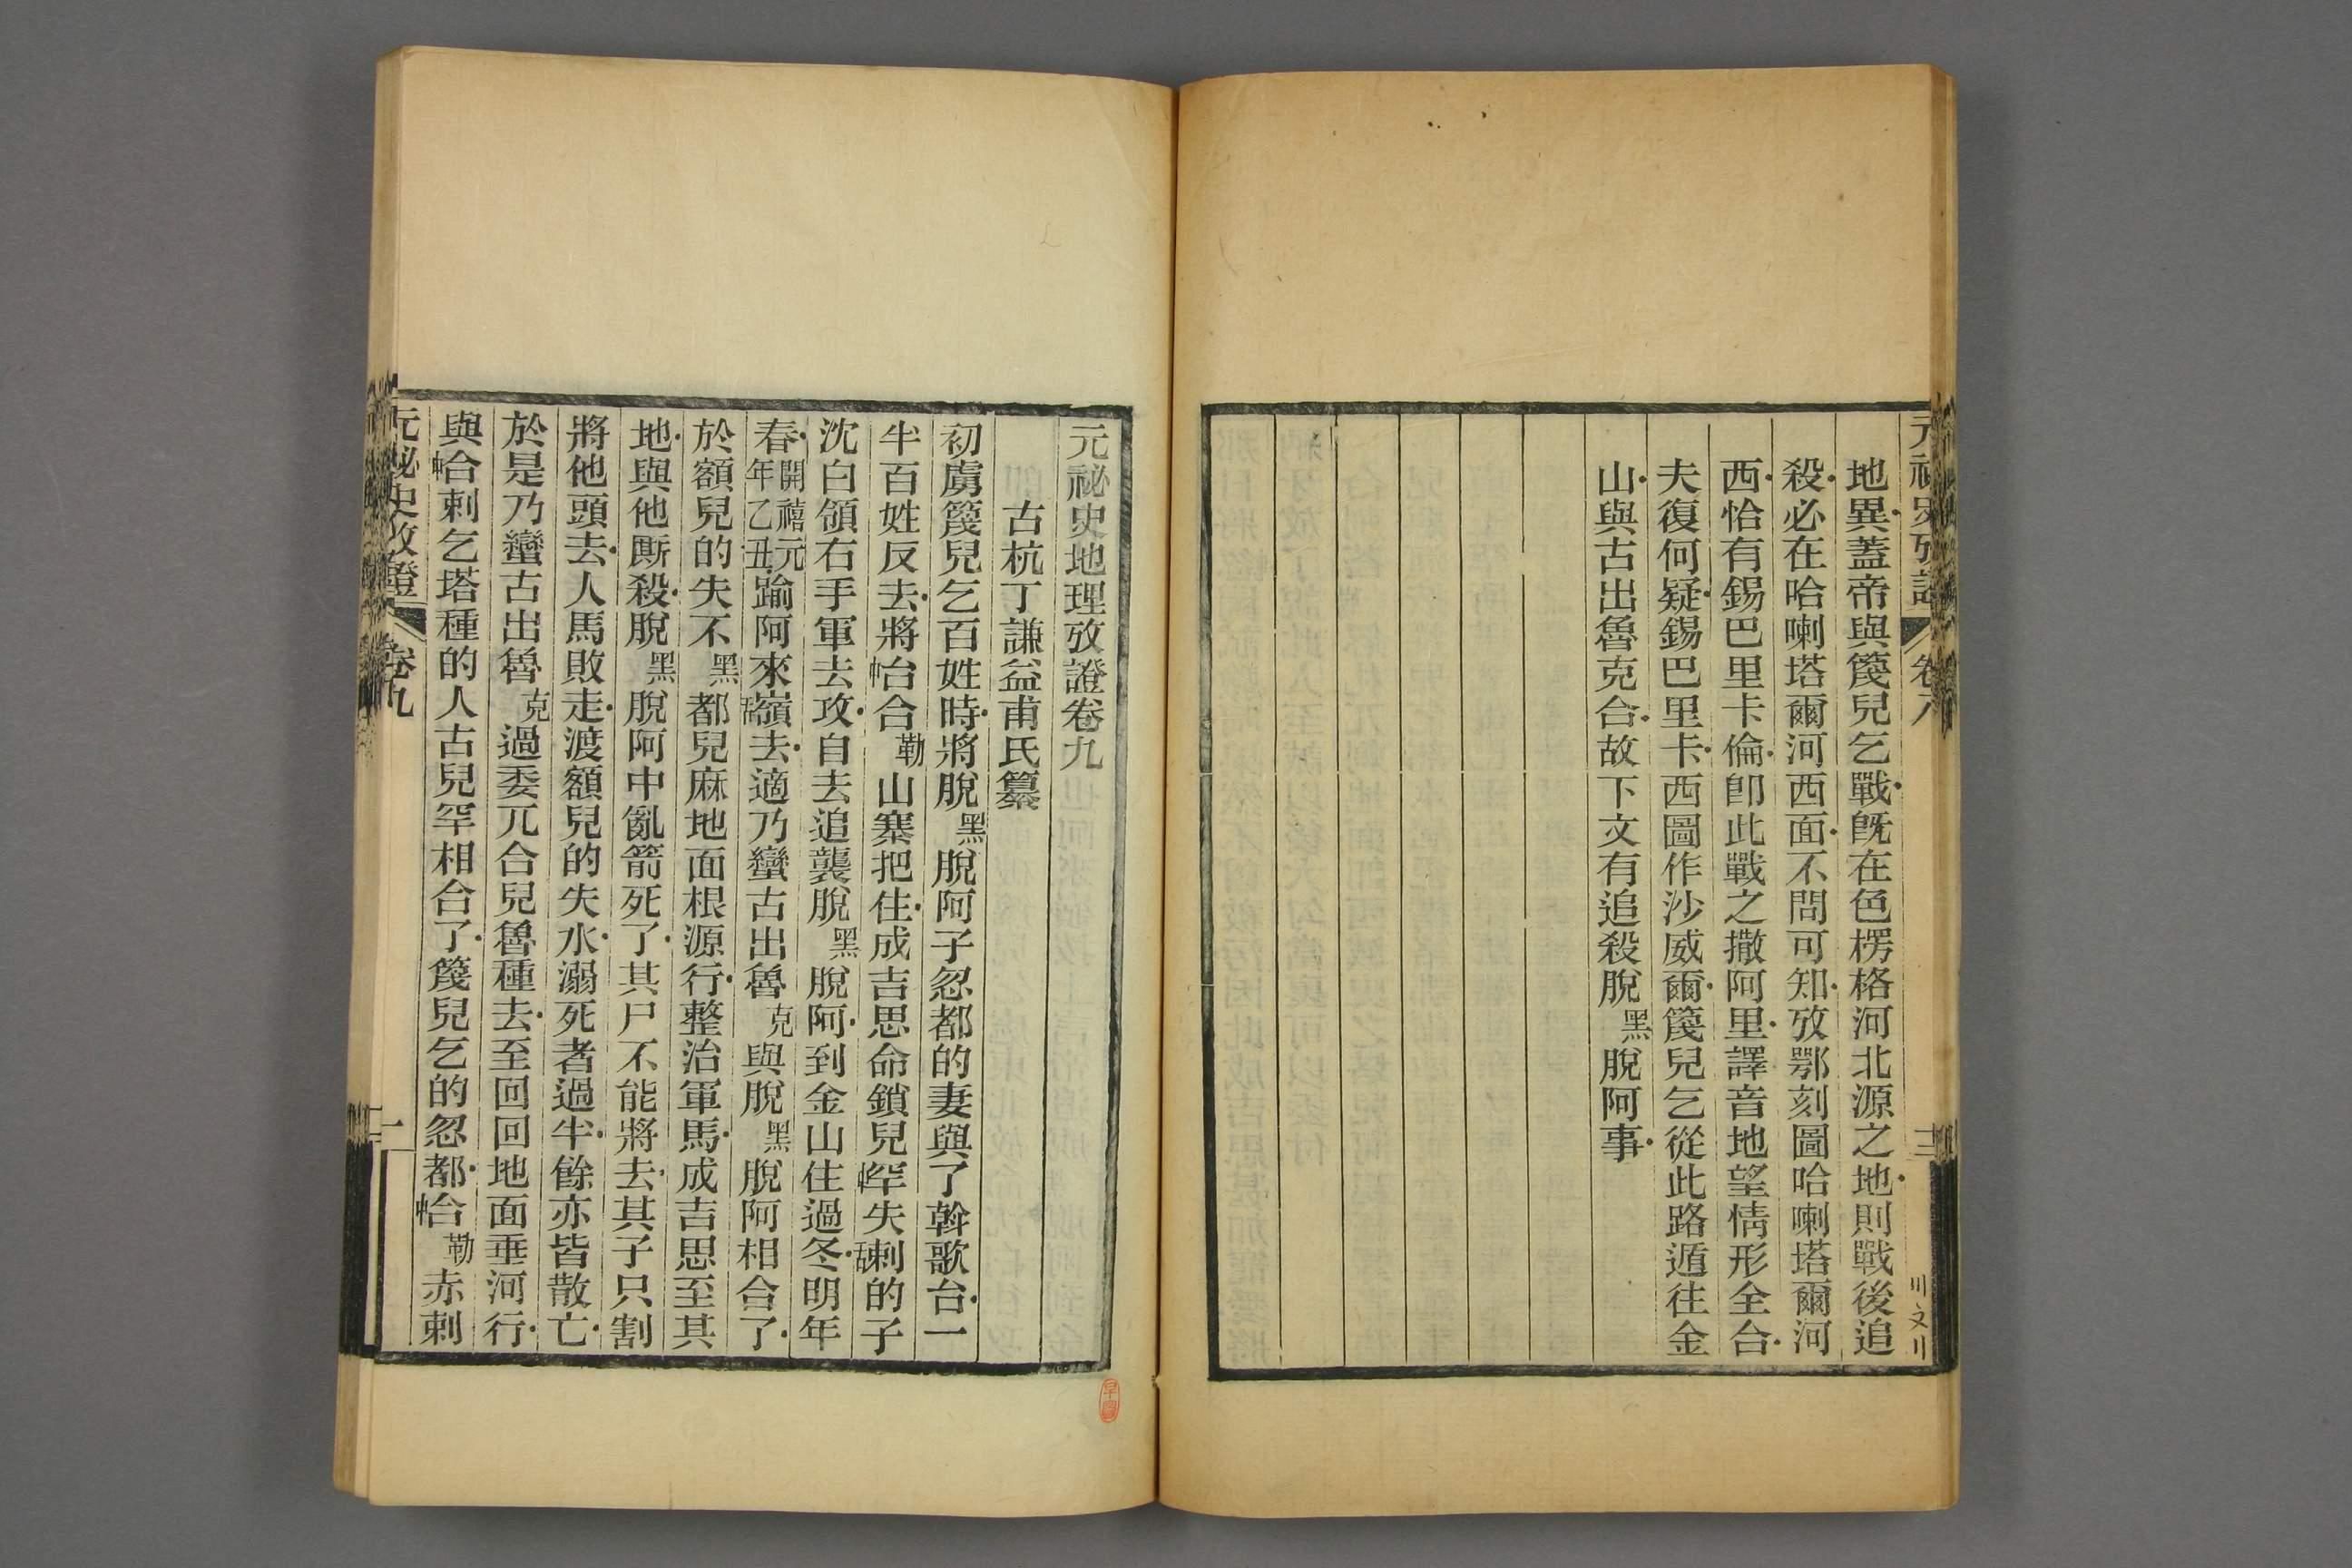 地異蓋帝與篾兒乞戰旣在色楞格河北源之地則戰後追
殺必在哈喇塔爾河西面不問可知攷鄂刻圖哈喇塔爾河
西恰有錫巴里卡倫卽此戰之撒阿里譯音地望情形全合
夫復何疑錫巴里卡西圖作沙威爾篾兒乞從此路遁往金
山與古出魯克合故下文有追殺脫黑脫阿事
元祕史地理攷證卷九
古杭丁謙益甫氏纂
初虜篾兒乞百姓時將脫黑脫阿子忽都的妻與了斡歌台一
半百姓反去將中台合勒山寨把住成吉思命鎖兒中罕失舌剌的子
沈白領右手軍去攻自去追襲脫黑脫阿到金山住過冬明年
春開禧元年乙丑踰阿來舌嶺去適乃蠻古出魯克與脫黑脫阿相合了
於額兒的失不黑都兒麻地面根源行整治軍馬成吉思至其
地與他廝殺脫黑脫阿中亂箭死了其尸不能將去其子只割
將他頭去人馬敗走渡額兒的失水溺死者過半餘亦皆散亡
於是乃蠻古出魯克過委兀合兒魯種去至回回地面垂河行
與中合剌乞塔種的人古兒罕相合了篾兒乞的忽都中合勒赤剌
元祕史攷證 卷九